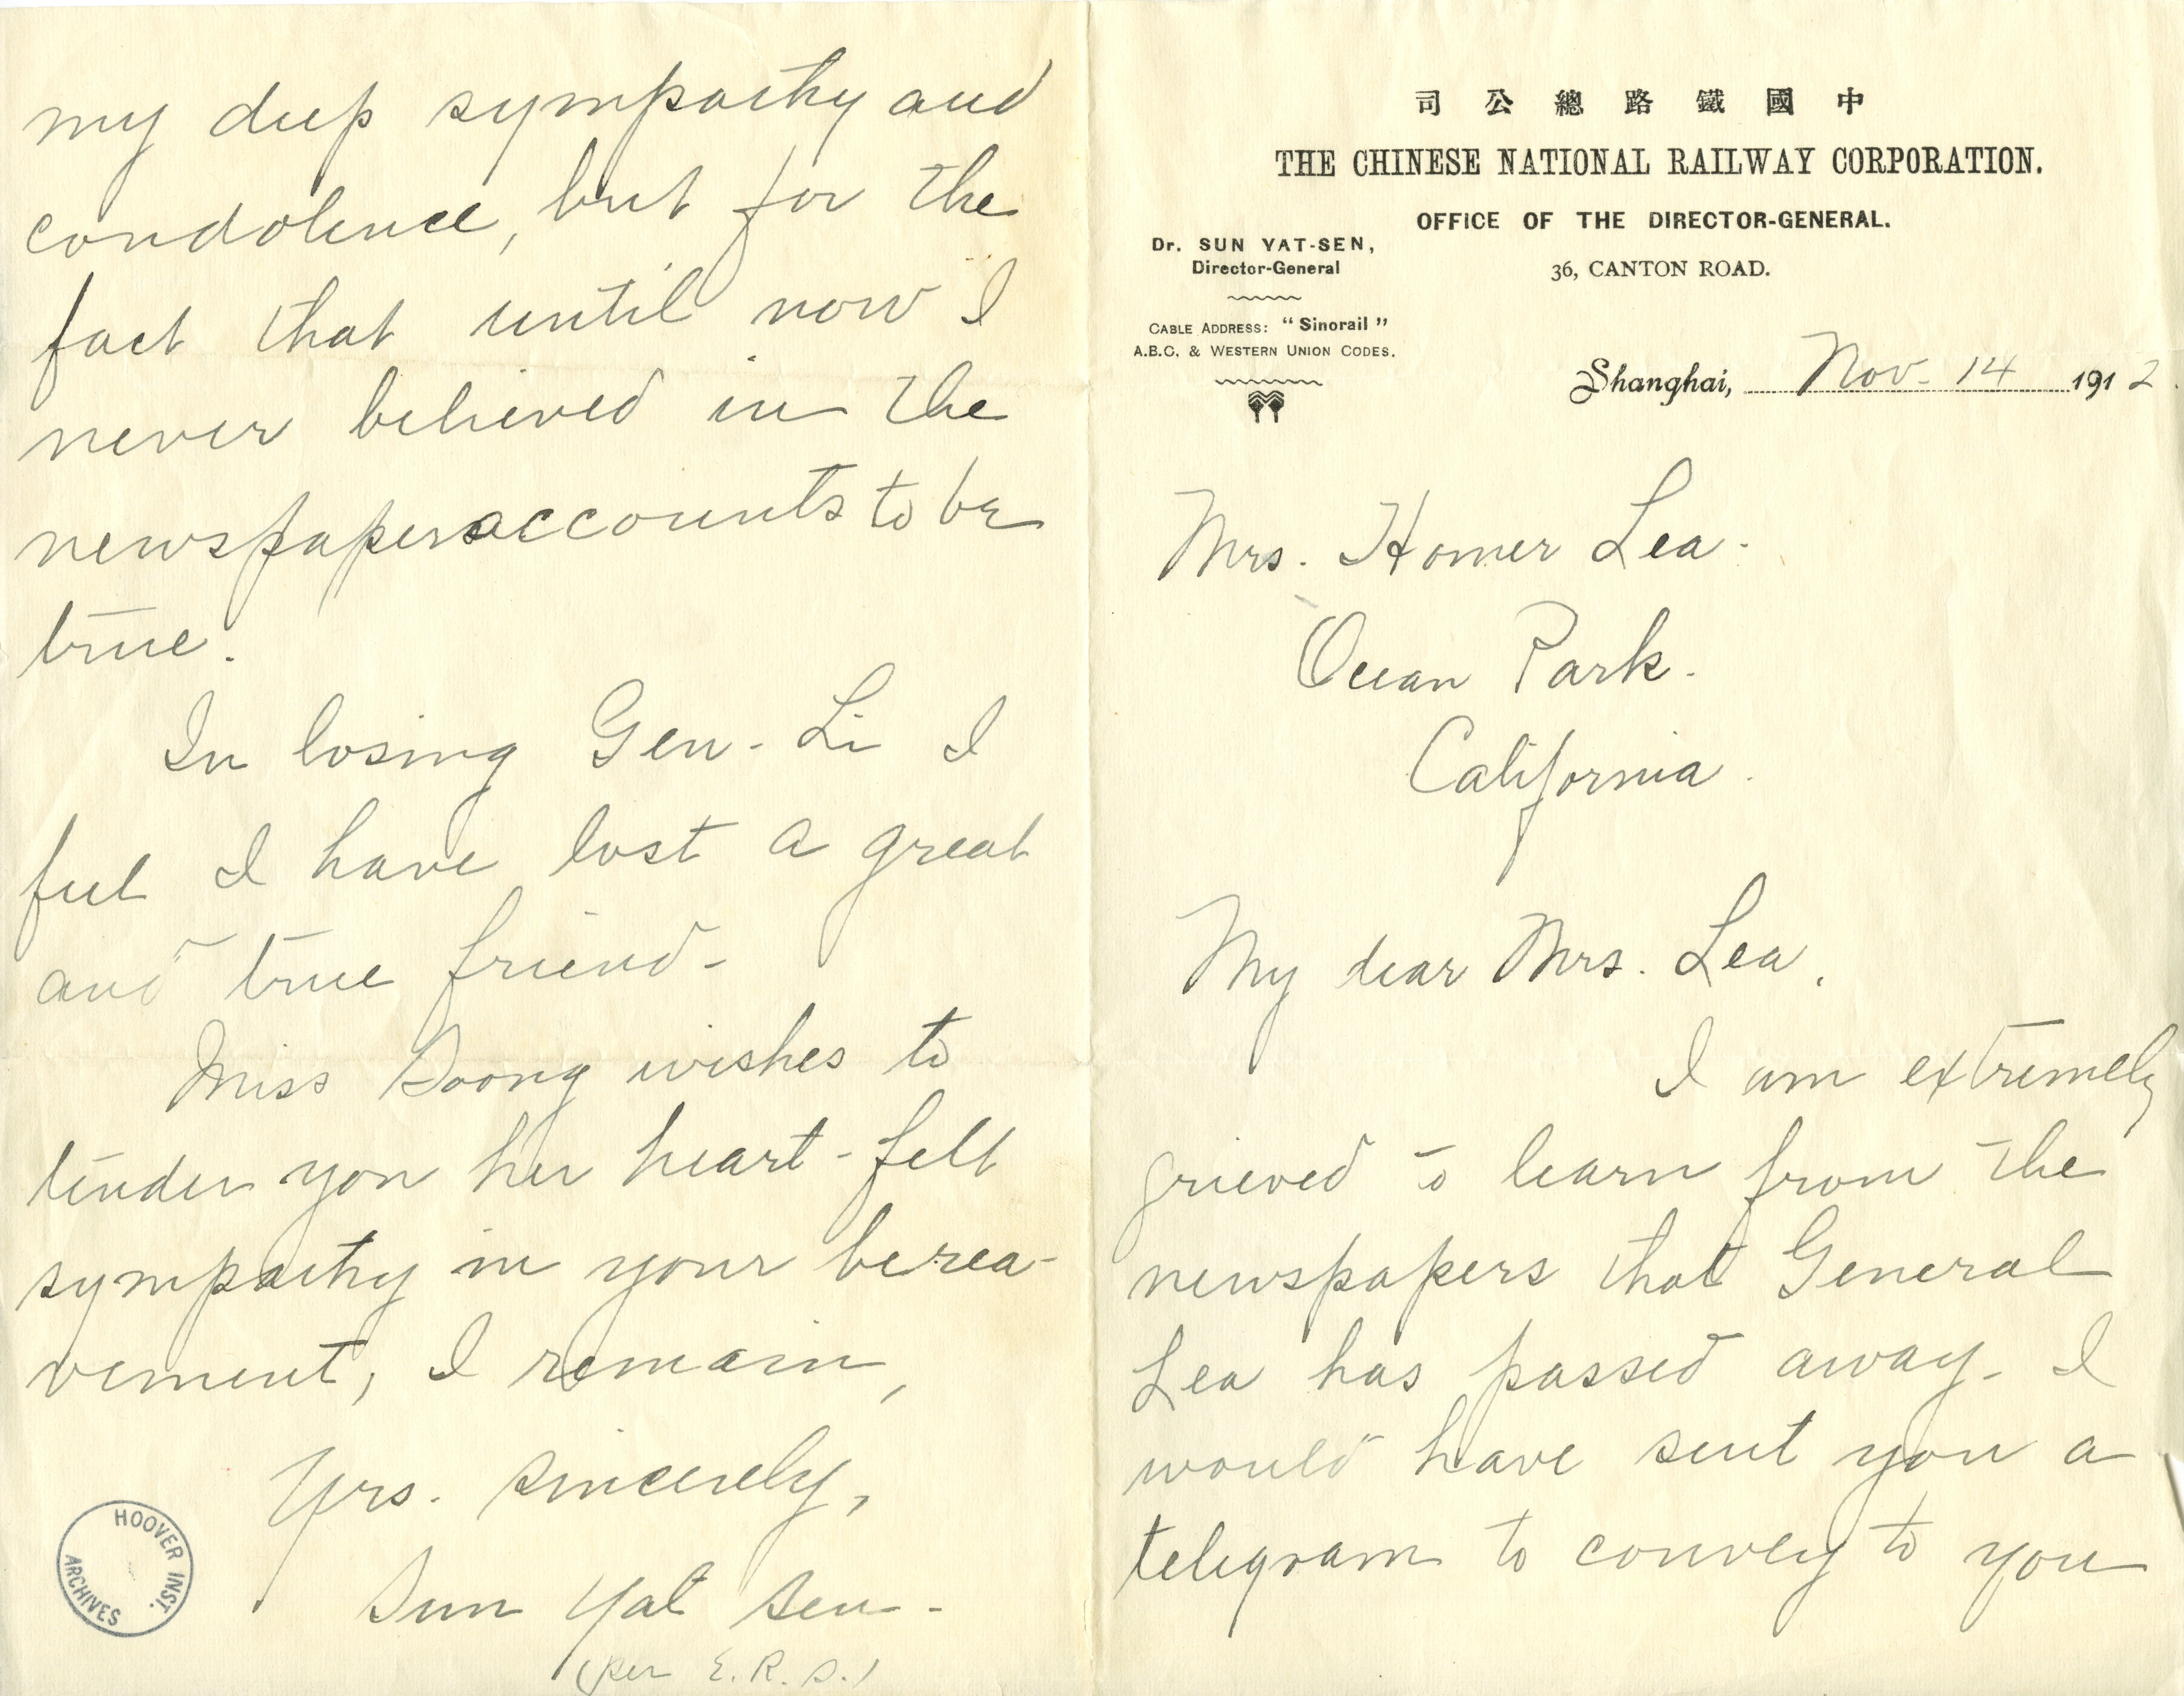 司公總路鐵國中
THE CHINESE NATIONAL RAILWAY CORPORATION.
OFFICE OF THE DIRECTOR-GENERAL.
36, CANTON ROAD.
Dr. SUN YAT-SEN,
Director-General
CABLE ADDRESS: "Sinorail"
A.B.C. & WESTERN UNION CODES.
Shanghai, Nov. 14 1912.
Mrs. Homer Lea.
Ocean Park.
California.
My dear Mrs. Lea,
I am extremely
grieved to learn from the
newspapers that General
Lea has passed away. I
would have sent you a
telegram to convey to you
my deep sympathy and
condolence, but for the
fact that until now I
never believed in the
newspapers accounts to be
true.
In losing Gen. Li I
feel I have lost a great
and true friend.
Miss Soong wishes to
tender you her heart-felt
sympathy in your berea-
vement, I remain,
Yrs. sincerely,
Sun Yat Sen.
(per E.R.S.)
HOOVER INST.
ARCHIVES